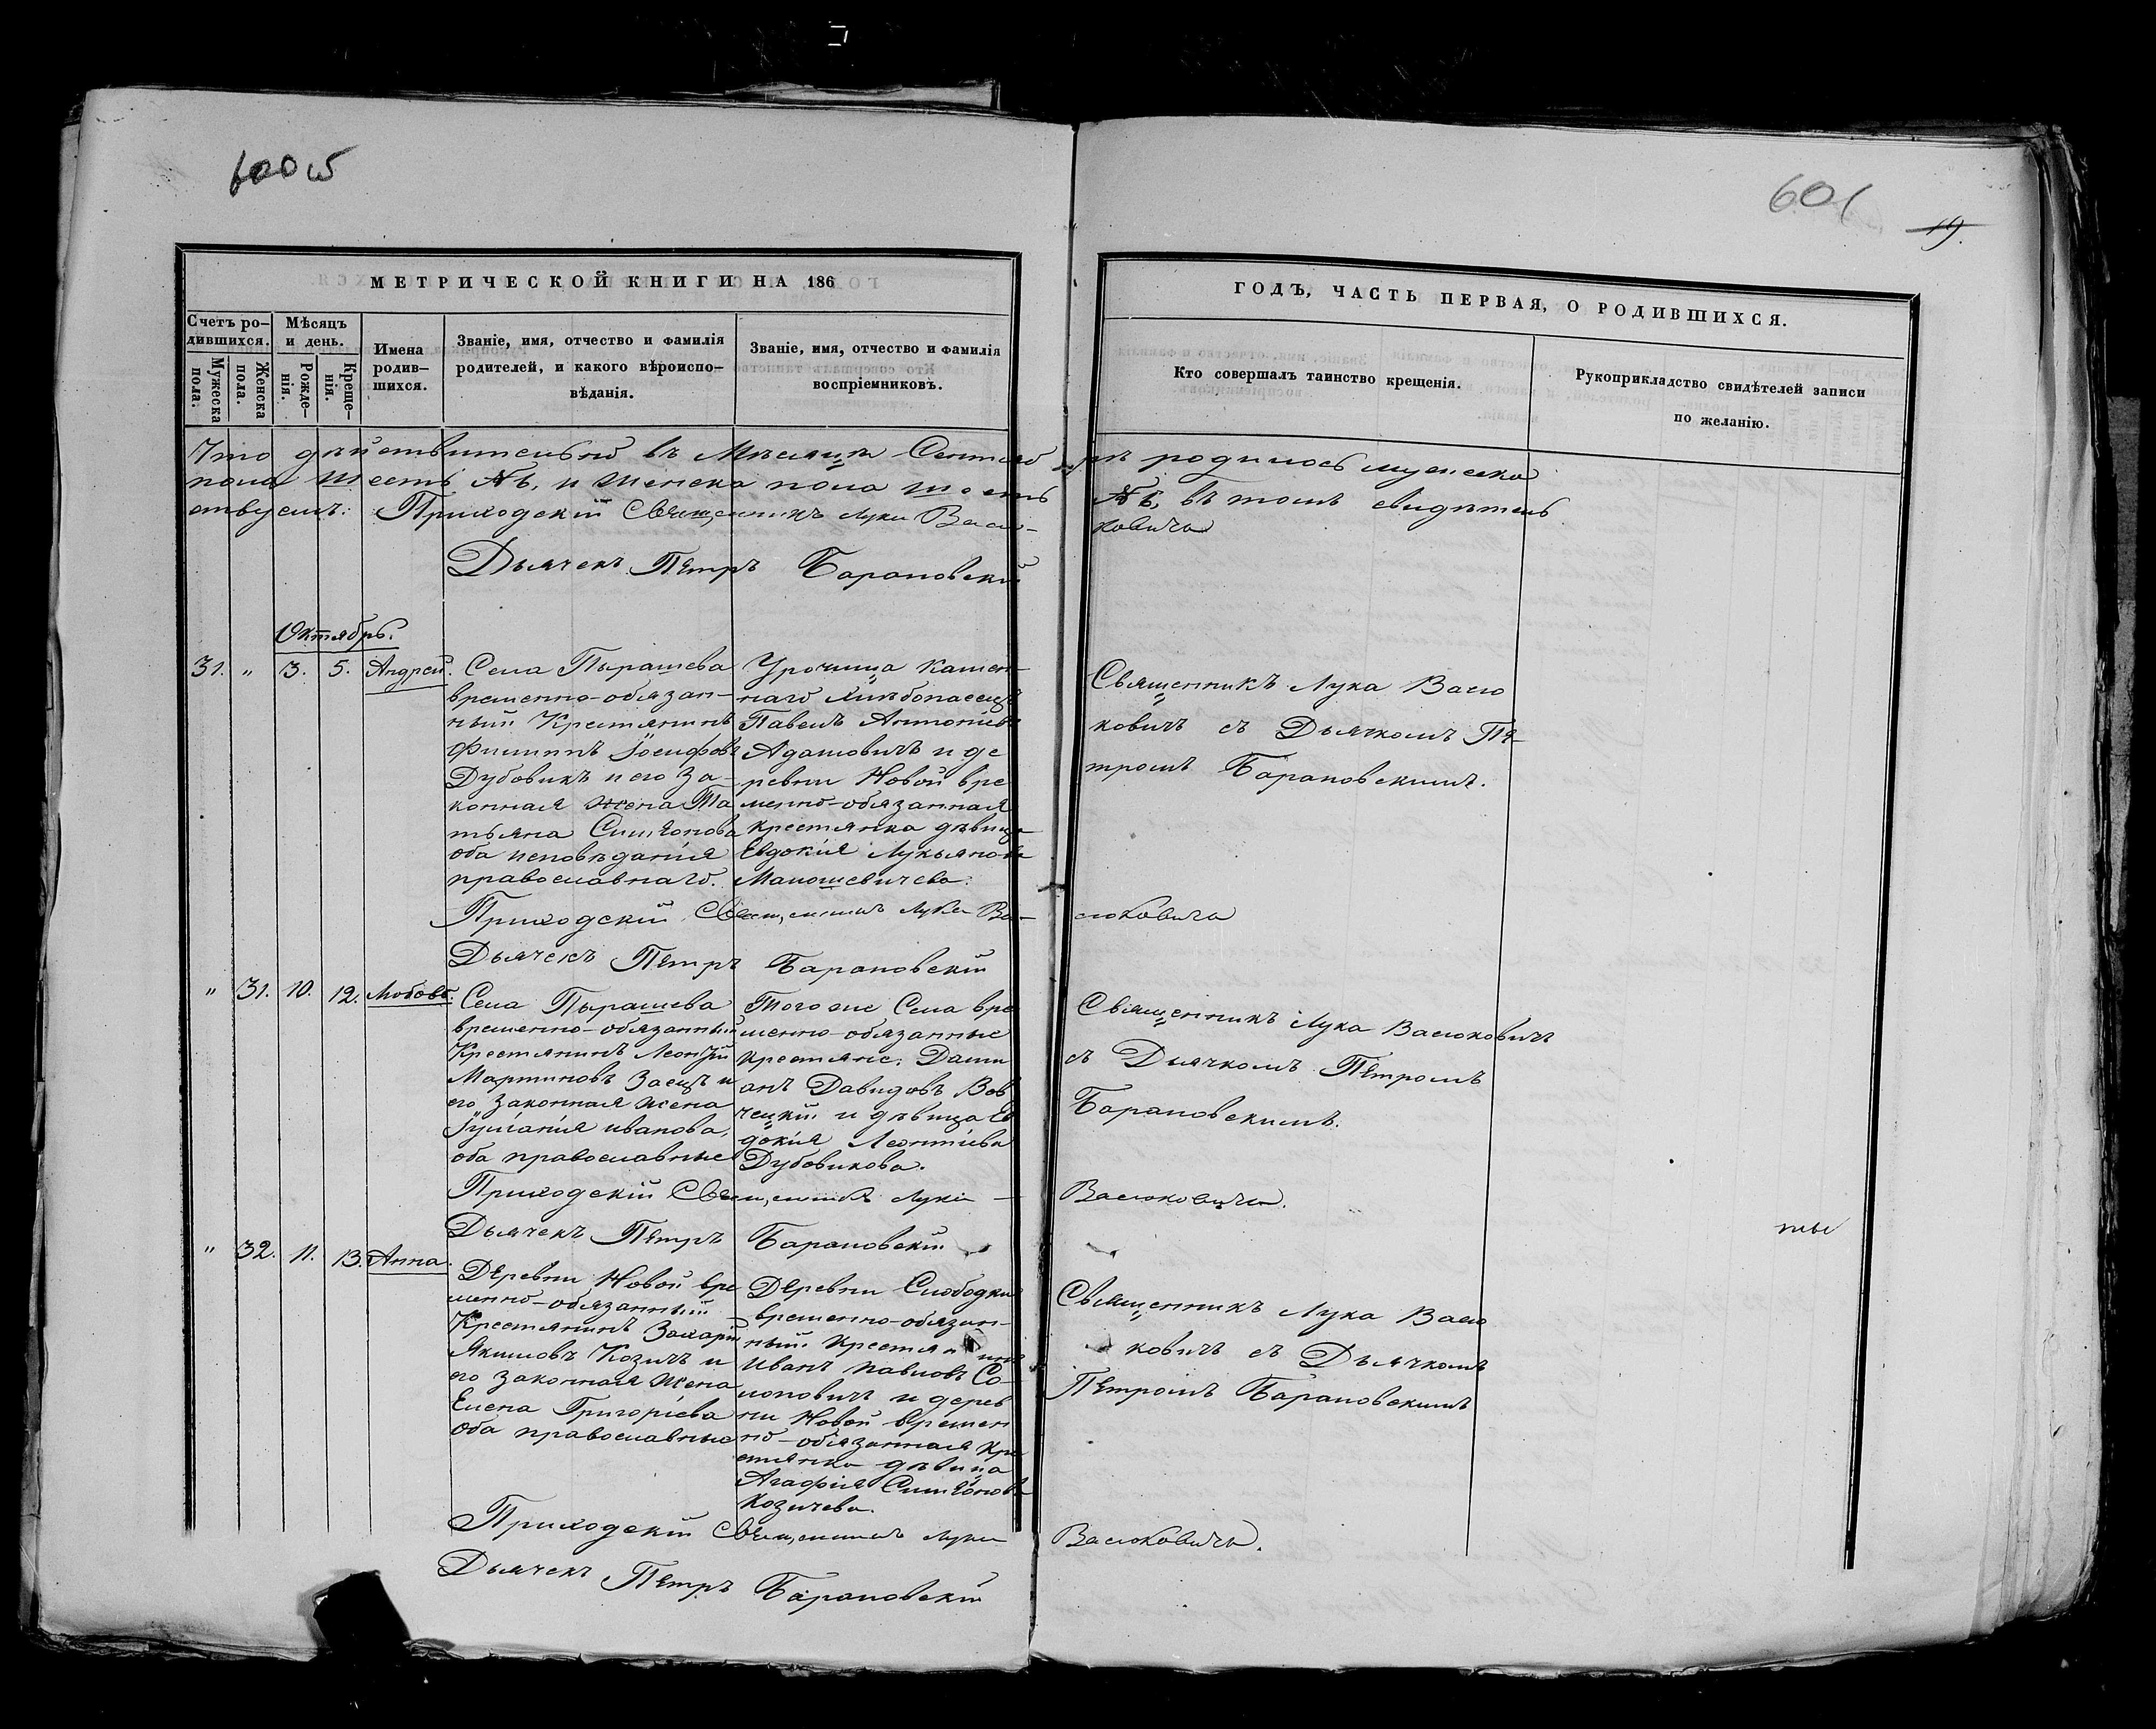 600 об
601
19.
МЕТРИЧЕСКОЙ КНИГИ НА 186
ГОДЪ, ЧАСТЬ ПЕРВАЯ, О РОДИВШИХСЯ.
Счетъ ро-
дившихся.
Мужеска
пола.
Женска
пола.
Мѣсяцъ
и день.
Рожде-
нія.
Креще-
нія.
Имена
родив-
шихся.
Званіе, имя, отчество и фамилія
родителей, и какого вѣроиспо-
вѣданія.
Званіе, имя, отчество и фамилія
воспріемниковъ.
Кто совершалъ таинство крещенія.
Рукоприкладство свидѣтелей записи
по желанію.
Что дѣйствительно въ Мѣсяцѣ Сентябрѣ родилось мужеска
пола шесть №ъ, и женска пола шесть №ъ, въ томъ свидѣтель
ствуемъ: Приходскій Священникъ Лука Васю-
ковичъ
Дьячекъ Пётръ Барановскій
Октябрь.
31. " 3. 5. Андрей.
Села Пырашева
временно-обязан-
ный Крестянинъ
Филиппъ Іосифовъ
Дубовикъ и его За-
конная жена Та
тьяна Симёонова
оба исповѣданія
православнаго.
Урочища Камен-
наго Хлѣбопасецъ
Павелъ Антоніевъ
Адамовичъ и де
ревни Новой вре
менно-обязанная
крестянка дѣвица
Евдокія Лукьянова
Маношевичева.
Священникъ Лука Васю
ковичъ съ Дьячкомъ Пё-
тромъ Барановскимъ.
Приходскій Священникъ Лука Ва-
сюковичъ
Дьячекъ Пётръ Барановскій
" 31. 10. 12. Любовь.
Села Пырашева
временно-обязанный
Крестянинъ Леонтій
Мартиновъ Заецъ и
его законная жена
Іуліанія иванова,
оба православные
Того же Села вре
менно-обязанные
крестяне: Дами
анъ Давидовъ Вов
чецкій и дѣвица Ев
докія Леонтіева
Дубовикова.
Священникъ Лука Васюковичъ
съ Дьячкомъ Пётромъ
Барановскимъ.
Приходскій Священникъ Лука —
Васюковичъ.
Дьячекъ Пётръ Барановскій
" 32. 11. 13. Анна.
Деревни Новой вре
менно-обязанный
Крестянинъ Захарій
Якимовъ Козичъ и
его законная жена
Елена Григоріева
оба православные
Деревни Слободки
временно-обязан-
ный крестянинъ
Иванъ Павловъ Со-
лоповичъ и дерев
ни Новой времен
но-обязанная кре
стянка дѣвица
Агафія Симёонова
Козичева.
Священникъ Лука Васю
ковичъ съ Дьячкомъ
Пётромъ Барановскимъ
Приходскій Священникъ Лука
Васюковичъ.
Дьячекъ Пётръ Барановскій